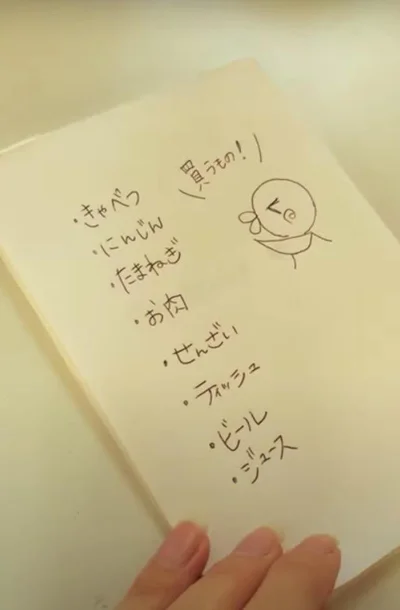 買うもの!
・きゃべつ
・にんじん
・たまねぎ
・お肉
・せんざい
・ティッシュ
・ビール
・ジュース